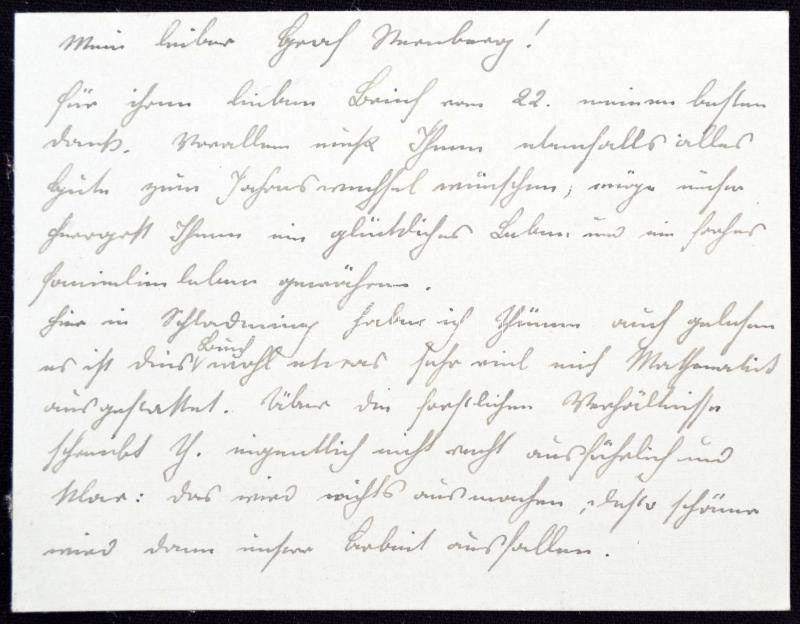 Mein lieber Graf Sternberg!
für ihren lieben Brief vom 22. meinen besten
Dank. Vorallem muß Ihnen ebenfalls alles
Gute zum Jahreswechsel wünschen; möge unser
Herrgott Ihnen ein glückliches Leben und ein frohes
Familienleben gewähren.
Hier in Schladming habe ich Thünen auch gelesen
es ist dies Buch wohl etwas sehr viel mit Mathematik
ausgestattet. Über die forstlichen Verhältnisse
schreibt Th. eigentlich nicht recht ausführlich und
klar: das wird nichts ausmachen, desto schöner
wird dann unsere Arbeit ausfallen.